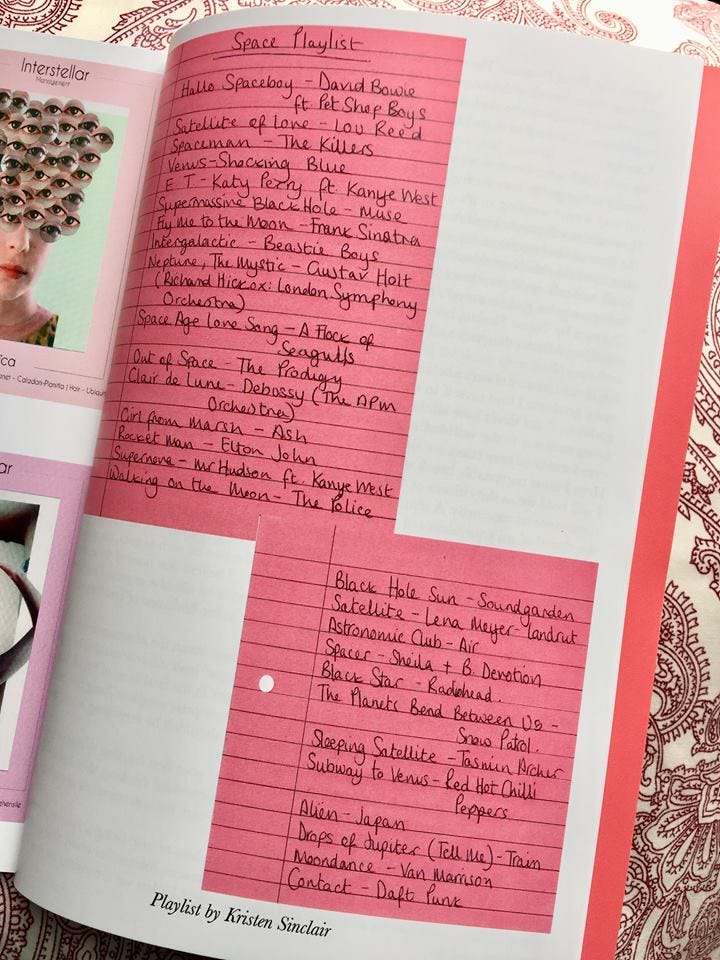 Interstellar
Management
ica
anet - Caladan-Planitia | Hair - Ubiqui
ar
ehensile
Space Playlist
Hallo Spaceboy - David Bowie
ft. Pet Shop Boys
Satellite of Love - Lou Reed
Spaceman - The Killers
Venus - Shocking Blue
E T - Katy Perry ft. Kanye West
Supermassive Black Hole - Muse
Fly Me to the Moon - Frank Sinatra
Intergalactic - Beastie Boys
Neptune, The Mystic - Gustav Holt
(Richard Hickox: London Symphony
Orchestra)
Space Age Love Song - A Flock of
Seagulls
Out of Space - The Prodigy
Clair de Lune - Debossy (The APM
Orchestra)
Girl from Marsh - Ash
Rocket Man - Elton John
Supernova - Mr Hudson ft. Kanye West
Walking on the Moon - The Police
Black Hole Sun - Soundgarden
Satellite - Lena Meyer-Landrut
Astronomic Club - Air
Spacer - Sheila + B. Devotion
Black Star - Radiohead.
The Planets Bend Between Us -
Snow Patrol.
Sleeping Satellite - Tasmin Archer
Subway to Venus - Red Hot Chilli
Peppers
Alien - Japan
Drops of Jupiter (Tell Me) - Train
Moondance - Van Morrison
Contact - Daft Punk
Playlist by Kristen Sinclair